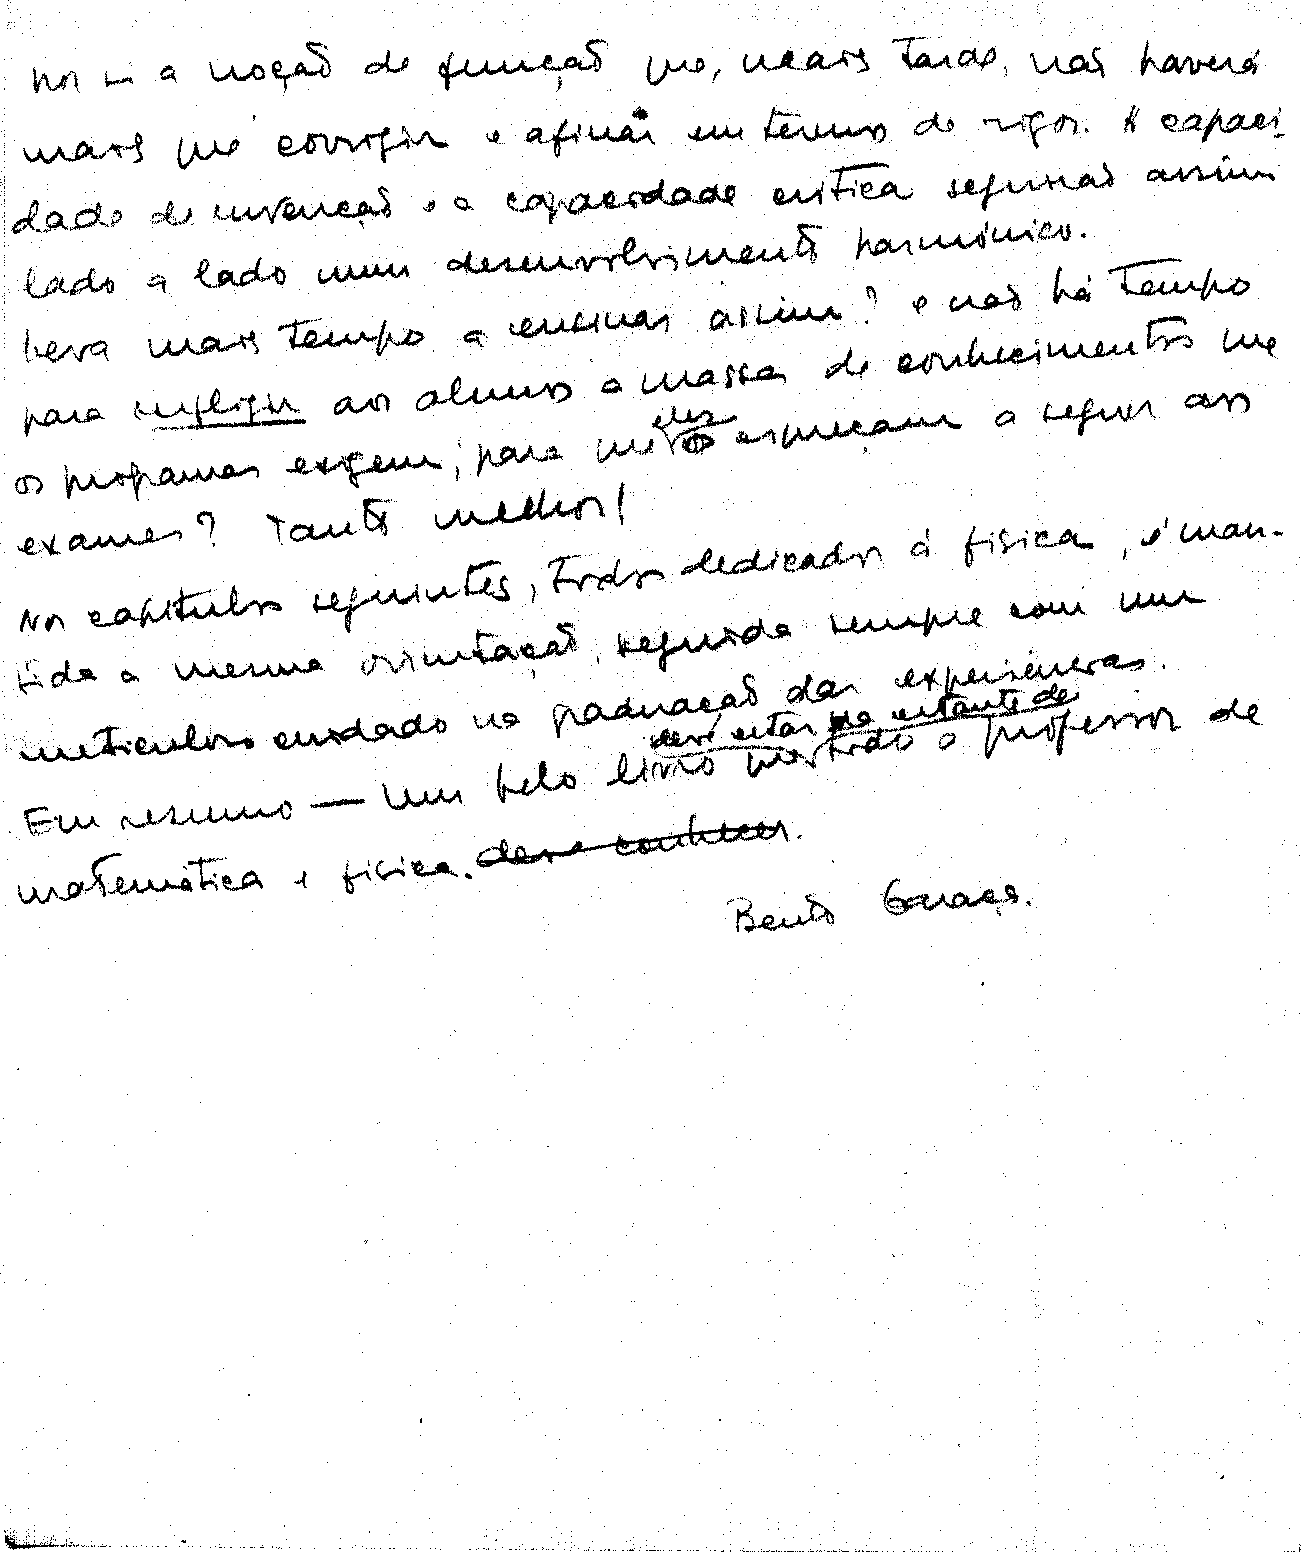 por si a noção de função que, mais tarde, não haverá
mais que corrigir e afinar em termos de rigor. A capaci-
dade de invenção e a capacidade crítica seguirão assim
lado a lado num desenvolvimento harmónico.
Leva mais tempo a ensinar assim? e não há tempo
para impingir aos alunos a massa de conhecimentos que
os programas exigem, para que eles a esqueçam a seguir aos
exames? Tanto melhor!
Nos capítulos seguintes, todos dedicados à física, é man-
tida a mesma orientação, seguida sempre com um
meticuloso cuidado na graduação das experiências.
deve estar na estante de
Em resumo — Um belo livro que todo o professor de
matemática e física. deve conhecer.
Bento Caraça.